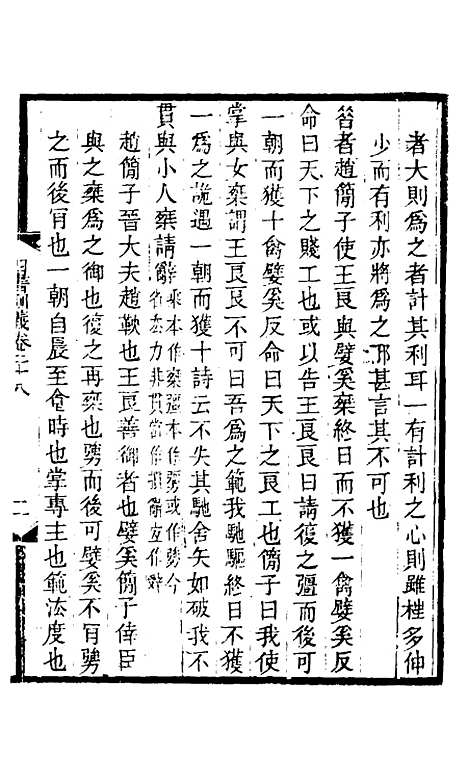 者大則為之者計其利耳一有計利之心則雖枉多伸
少而有利亦將為之邪甚言其不可也
昔者趙簡子使王良與嬖奚椉終日而不獲一禽嬖奚反
命曰天下之賤工也或以告王良良曰請復之彊而後可
一朝而獲十禽嬖奚反命曰天下之良工也簡子曰我使
掌與女椉謂王良良不可曰吾為之範我馳驅終日不獲
一為之詭遇一朝而獲十詩云不失其馳舍矢如破我不
貫與小人椉請辭
本作椉彊本作勥或作勥今
省去力非貫當作摜辭宜作辤
趙簡子晉大夫趙鞅也王良善御者也嬖奚簡子倖臣
與之椉為之御也復之再椉也勥而後可嬖奚不肎勥
之而後肎也一朝自晨至食時也掌專主也範法度也
四書訓義卷二十八